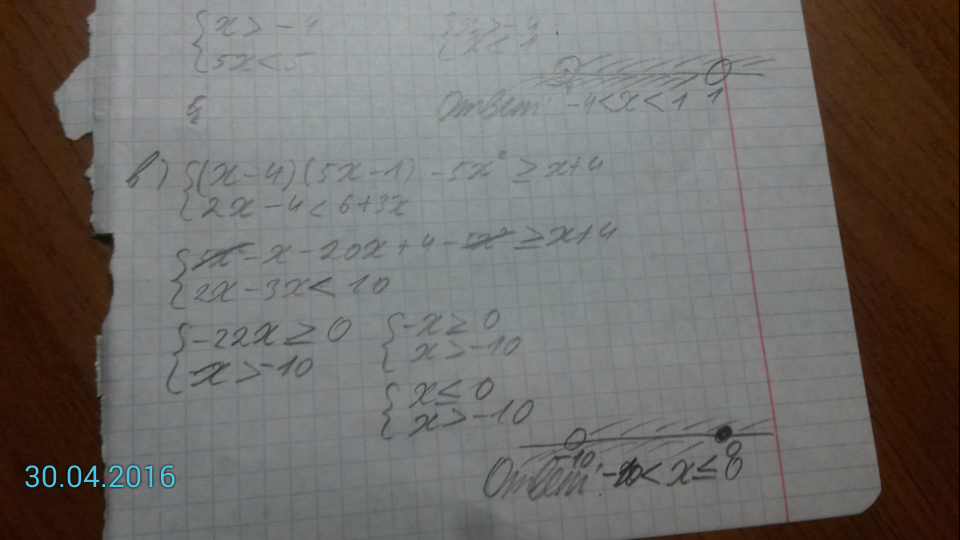 {x > -4 {x > -4
{5x < 5 {x < 1
Ответ: -4 < x < 1 1
в) {(x-4)(5x-1) -5x² ≥ x+4
{2x-4 < 6+3x
{5x² - x - 20x + 4 - 5x² ≥ x+4
{2x - 3x < 10
{-22x ≥ 0 {-x ≥ 0
{x > -10 {x > -10
{x ≤ 0
{x > -10
-10
Ответ: -10 < x ≤ 0
30.04.2016